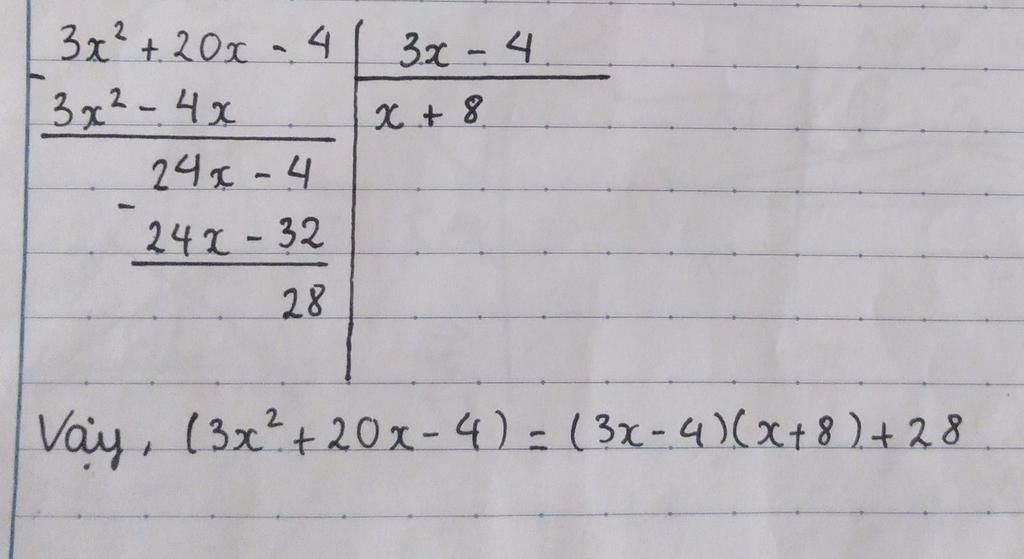 3x² + 20x - 4 | 3x - 4
-
3x² - 4x | x + 8
24x - 4
-
24x - 32
28
Vậy, (3x² + 20x - 4) = (3x - 4)(x + 8) + 28